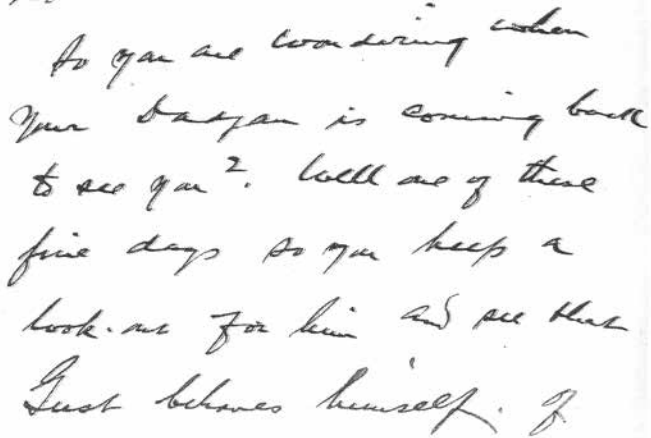 So you are wondering when
your Dadjan is coming back
to see you?. Well one of these
fine days so you keep a
look-out for him and see that
Gust behaves himself. If